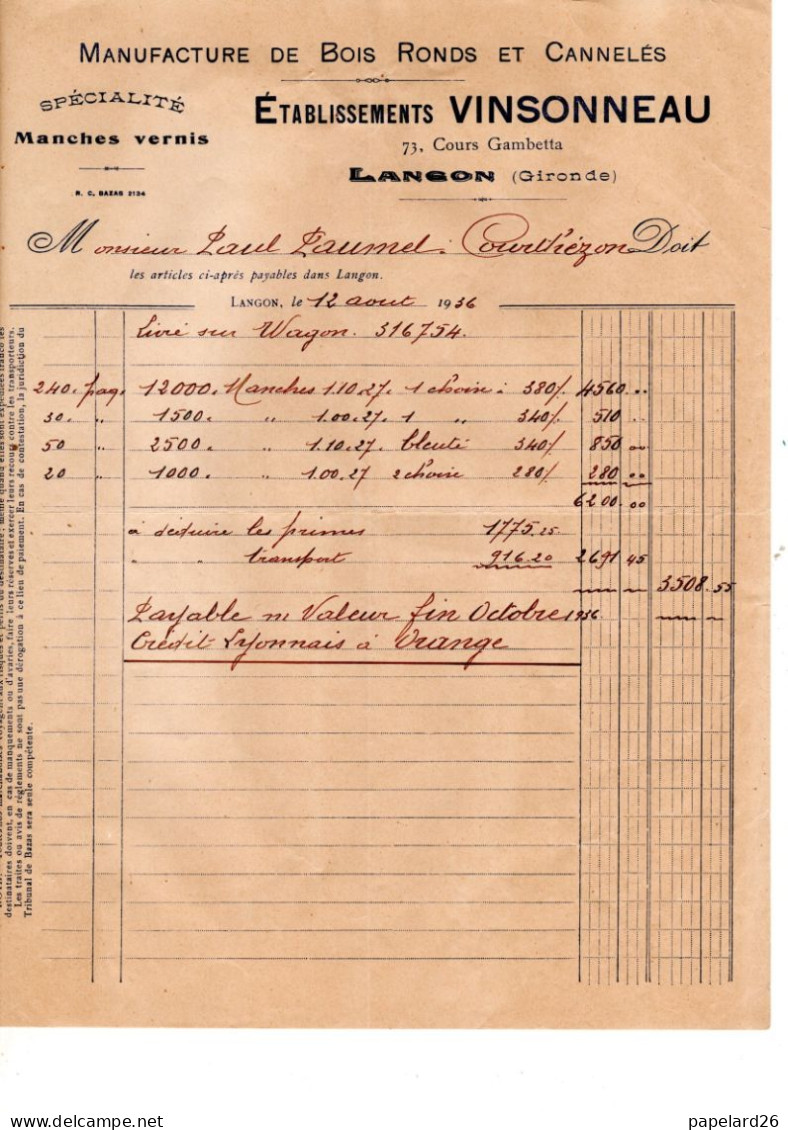 MANUFACTURE DE BOIS RONDS ET CANNELÉS
SPÉCIALITÉ
Manches vernis
R. C. BAZAS 2134
ÉTABLISSEMENTS VINSONNEAU
73, Cours Gambetta
LANGON (Gironde)
Monsieur Paul Paumel. Courthézon Doit
les articles ci-après payables dans Langon.
LANGON, le 12 aout 1936
Livré sur Wagon. 316754.
240. paq. 12000. Manches 1.10.27. 1 choix à 380/. 4560 ..
30. „ 1500. „ 1.00.27. 1 „ 340/. 510 ..
50 „ 2500. „ 1.10.27. bleuté 340/. 850 00
20 „ 1000. „ 1.00.27 2 choix 280/. 280 00
6200. 00
à déduire les primes 1775.25
„ „ transport 916.20 2691 45
3508.55
Payable m/ Valeur fin Octobre 1936
Crédit Lyonnais à Orange
destinataires doivent, en cas de manquements ou d'avaries, faire leurs réserves et exercer leurs recours contre les transporteurs.
Les traites ou avis de règlements ne sont pas une dérogation à ce lieu de paiement. En cas de contestation, la juridiction du
Tribunal de Bazas sera seule compétente.
papelard26